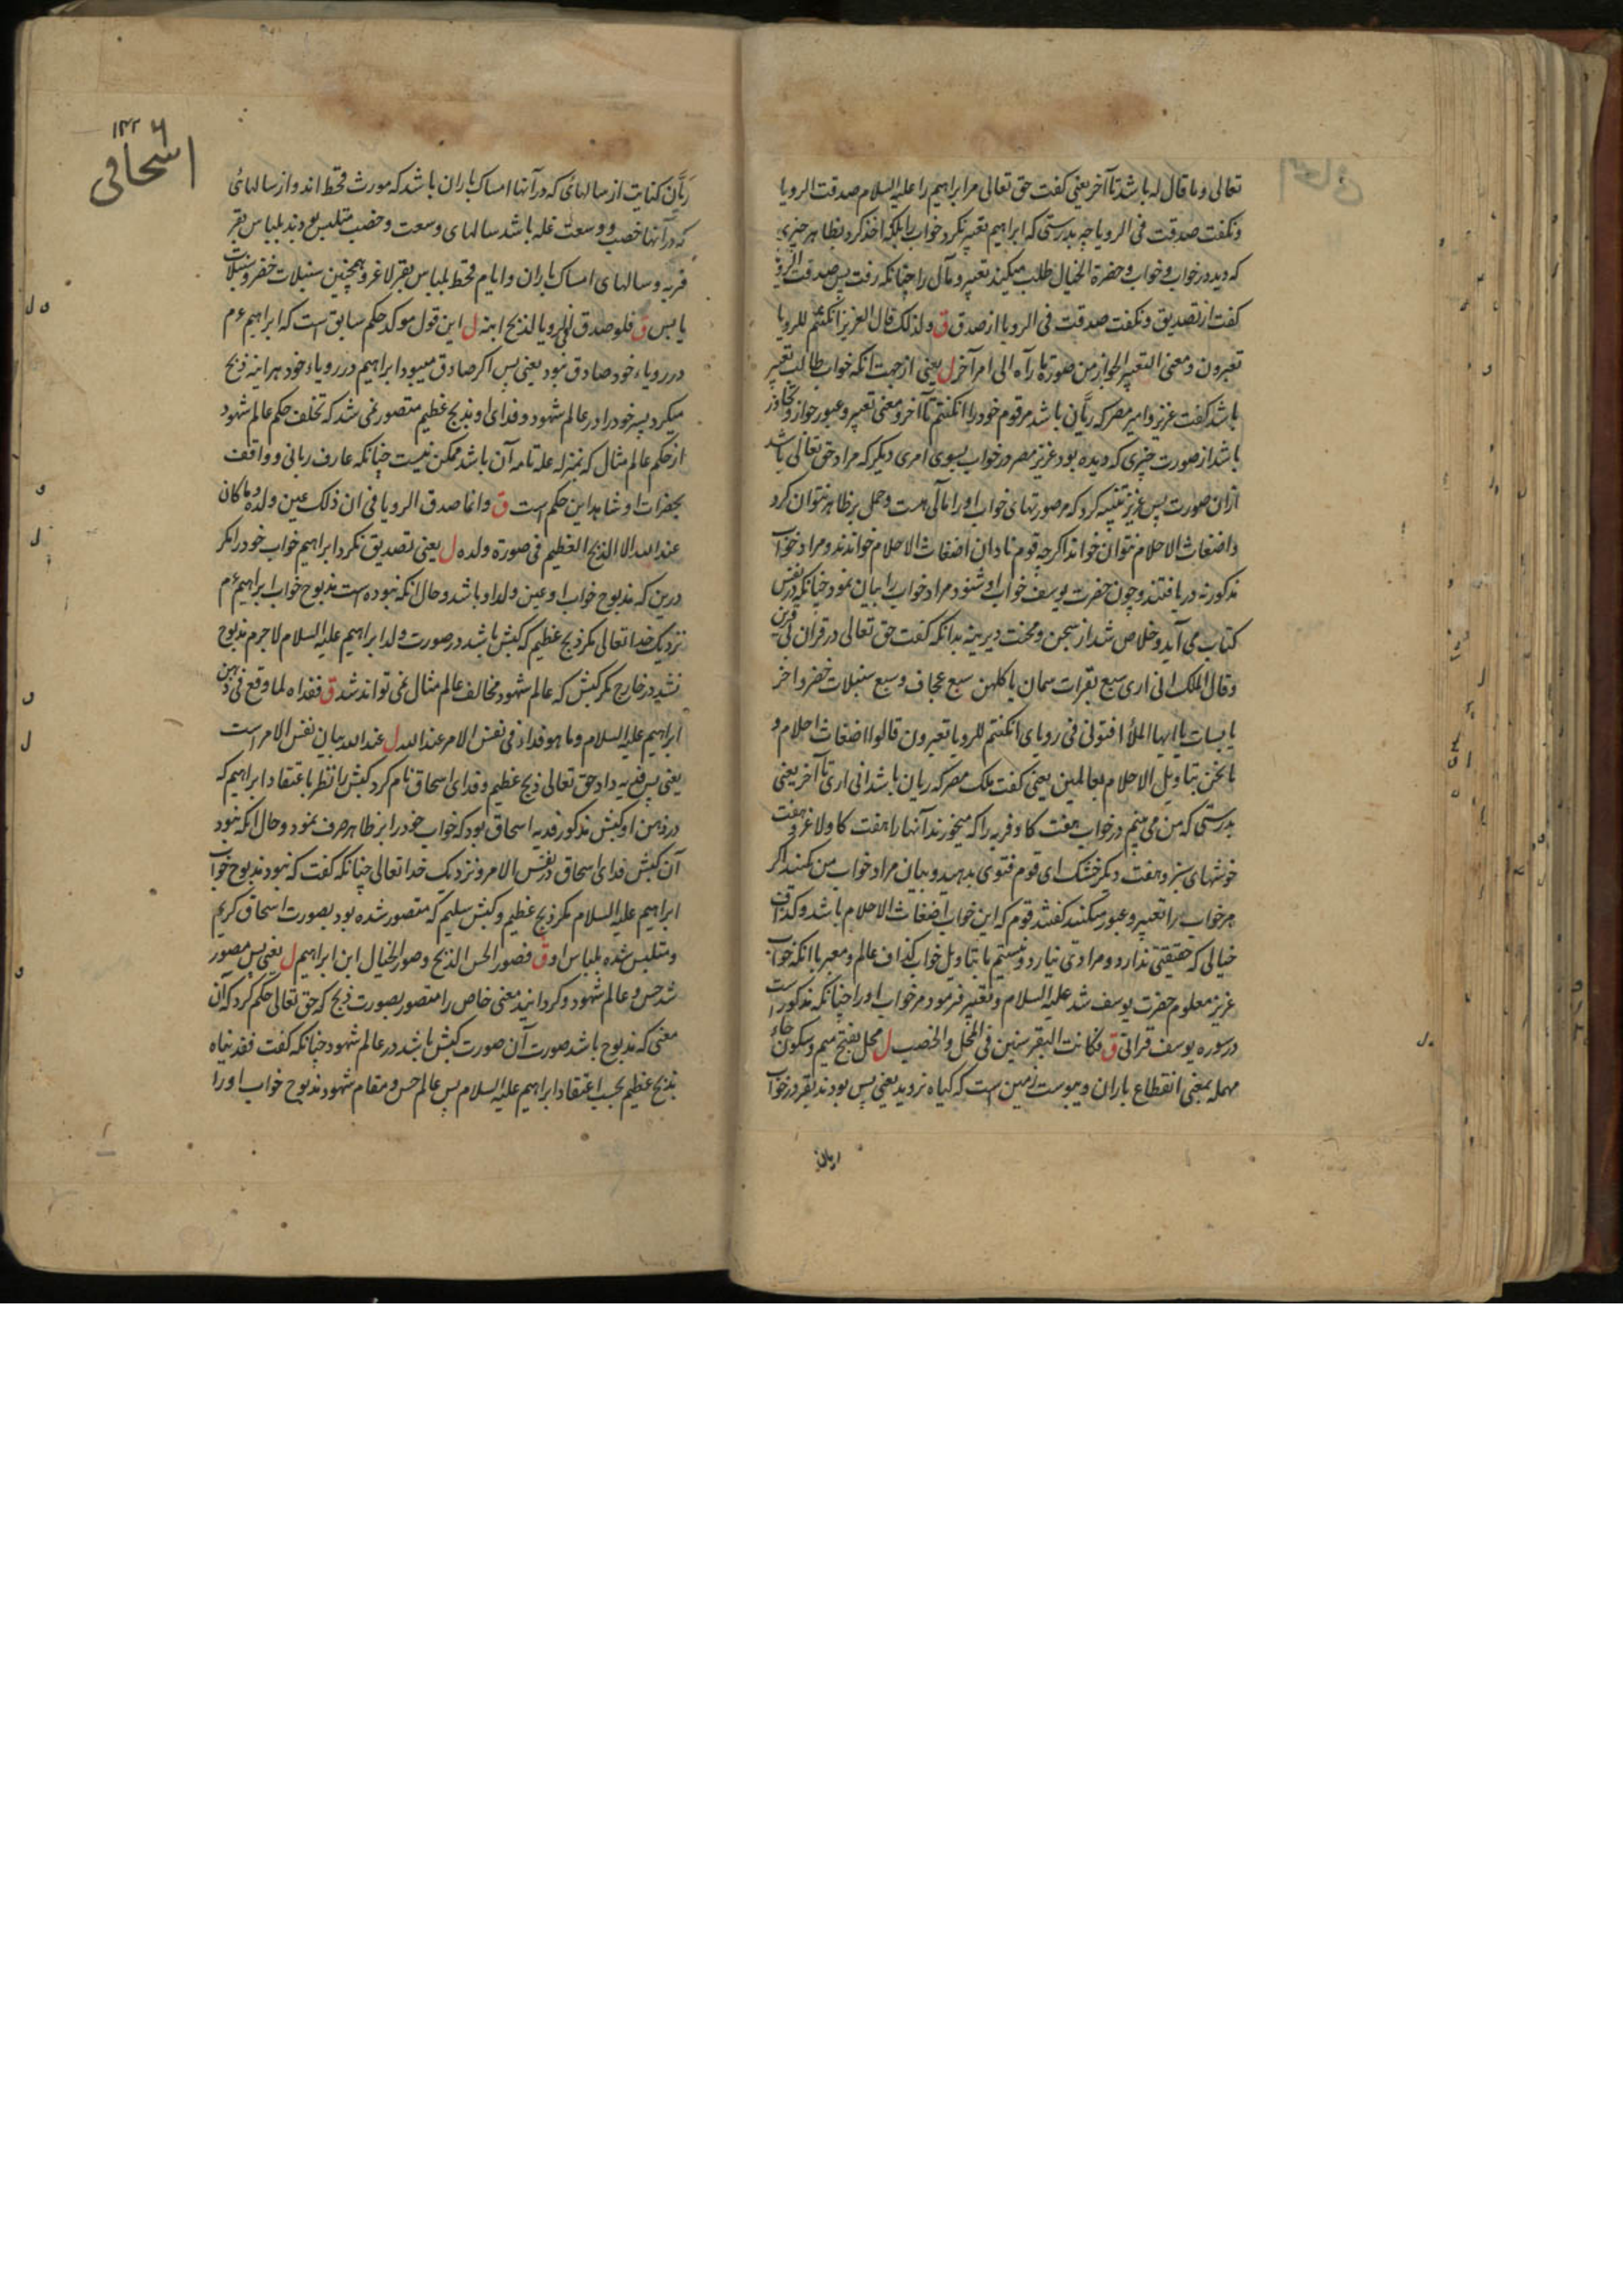 تعالی و ما قال له باشد تا آخر یعنی کفت حق تعالی مر ابراهیم را علیه السلام صدقت الرویا
و نکفت صدقت فی الرویا چه بدرستی که ابراهیم تعبیر نکرد خواب را بلکه اخذ کرد بظاهر چیزی
که دید در خواب و خواب و حضرة الخیال طلب میکند تعبیر و مآل را چنانکه رفت پس صدقت الرویا
کفت از تصدیق و نکفت صدقت فی الرویا از صدق ق و لذلک قال العزیز ان کنتم للرویا
تعبرون و معنی التعبیر الجواز من صورة ما رآه الی امر آخر ل یعنی از جهت انکه خواب طالب تعبیر
باشد کفت عزیز و امیر مصر که ریّان باشد مر قوم خود را ان کنتم تا آخر و معنی تعبیر و عبور جواز و تجاوز
باشد از صورت چیزی که دیده بود عزیز مصر در خواب بسوی امری دیکر که مراد حق تعالی باشد
ازان صورت پس عزیز تنبیه کرد که مر صورتهای خواب او را مآلی هست و حمل بر ظاهر نتوان کرد
و اضغاث الاحلام نتوان خواند اکرچه قوم نادان اضغاث الاحلام خواندند و مراد خواب
مذکور نه دریافتند و چون حضرت یوسف خواب او شنود مراد خواب را بیان نمود چنانکه در نفس
کتاب می آید و خلاص شد از سجن و محنت دیرینه بدانکه کفت حق تعالی در قران
و قال الملک انی اری سبع بقرات سمان یاکلهن سبع عجاف و سبع سنبلات خضر و اخر
یابسات یا ایها الملأ افتونی فی رویای ان کنتم للرویا تعبرون قالوا اضغاث احلام و
ما نحن بتاویل الاحلام بعالمین یعنی کفت ملک مصر که ریان باشد انی اری تا آخر یعنی
بدرستی که من می بینم در خواب هفت کاو فربه را که میخورند آنها را هفت کاو لاغر و هفت
خوشهای سبز و هفت دیکر خشک ای قوم فتوی بدهید و بیان مراد خواب من کنید اکر
مر خواب را تعبیر و عبور میکنید کفتند قوم که این خواب اضغاث الاحلام باشد و کذاف
خیالی که حقیقتی ندارد و مرادی نیارد و نیستیم ما بتاویل خواب کذاف عالم و معبر با انکه خواب
عزیز معلوم حضرت یوسف شد علیه السلام و تعبیر فرمود مر خواب او را چنانکه مذکور است
در سوره یوسف قرانی ق فکانت البقر سنین فی المحل و الخصب ل محل بفتح میم و سکون حاء
مهمله بمعنی انقطاع باران و یبوست زمین است که کیاه نروید یعنی پس بودند بقر در خواب
ریان
۱۲۲ ۶
اسحاقی
ریّان کنایت از سالهائی که در آنها امساک باران باشد که مورث قحط اند و از سالهائی
که در آنها خصب و وسعت غله باشد سالهای وسعت و خصب متلبس بودند بلباس بقر
فربه و سالهای امساک باران و ایام قحط بلباس بقر لاغر و همچنین سنبلات خضر و سنبلات
یابس ق فلو صدق فی الرویا لذبح ابنه ل این قول موکد حکم سابق است که ابراهیم ع م
در رویاء خود صادق نبود یعنی پس اکر صادق میبود ابراهیم در رویاء خود هراینه ذبح
میکرد پسر خود را در عالم شهود و فدای او بذبح عظیم متصور نمی شد که تخلف حکم عالم شهود
از حکم عالم مثال که بمنزله علة تامه آن باشد ممکن نیست چنانکه عارف ربانی و واقف
بحضرات او شاهد این حکم است ق و انما صدق الرویا فی ان ذلک عین ولده و ما کان
عند الله الا الذبح العظیم فی صورة ولده ل یعنی تصدیق نکرد ابراهیم خواب خود را مکر
درین که مذبوح خواب او عین ولد او باشد و حال انکه نبوده است مذبوح خواب ابراهیم ع م
نزدیک خدا تعالی مکر ذبح عظیم که کبش باشد در صورت ولد ابراهیم علیه السلام لا جرم مذبوح
نشد در خارج مکر کبش که عالم شهود مخالف عالم مثال نمی تواند شد ق ففداه لما وقع فی ذهن
ابراهیم علیه السلام و ما هو فداء فی نفس الامر عند الله ل عند الله بیان نفس الامر است
یعنی پس فدیه داد حق تعالی ذبح عظیم و فدای اسحاق نام کرد کبش را نظر باعتقاد ابراهیم که
در ذهن او کبش مذکور فدیه اسحاق بود که خواب خود را بر ظاهر صرف نمود و حال انکه نبود
آن کبش فدای اسحاق در نفس الامر و نزدیک خدا تعالی چنانکه کفت که نبود مذبوح خواب
ابراهیم علیه السلام مکر ذبح عظیم و کبش سلیم که متصور شده بود بصورت اسحاق کریم
و متلبس شده بلباس او ق فصور الحس الذبح و صور الخیال ابن ابراهیم ل یعنی پس مصور
شد حس و عالم شهود و کردانید معنی خاص را متصور بصورت ذبح که حق تعالی حکم کرد که آن
معنی که مذبوح باشد صورت آن صورت کبش باشد در عالم شهود چنانکه کفت فقدیناه
بذبح عظیم بحسب اعتقاد ابراهیم علیه السلام پس عالم حس و مقام شهود مذبوح خواب او را